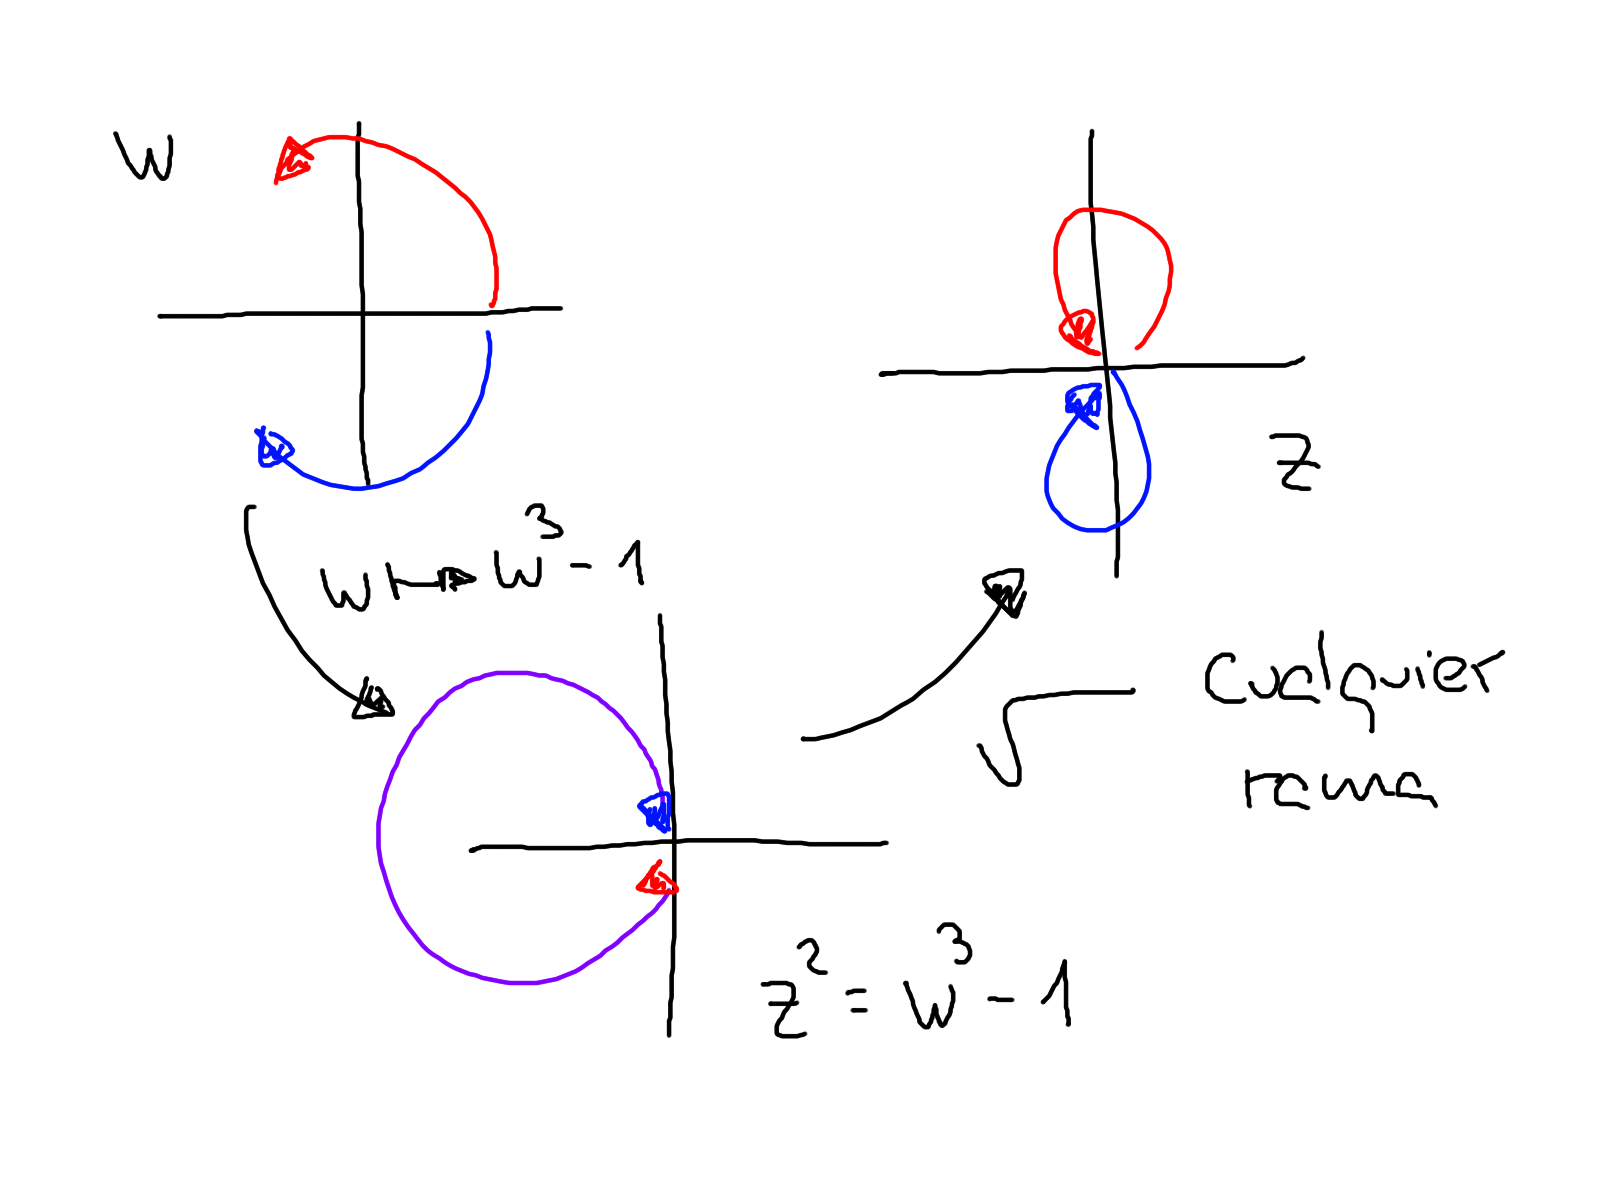 W
z
w ↦ w³ - 1
√ cualquier
rama
z² = w³ - 1